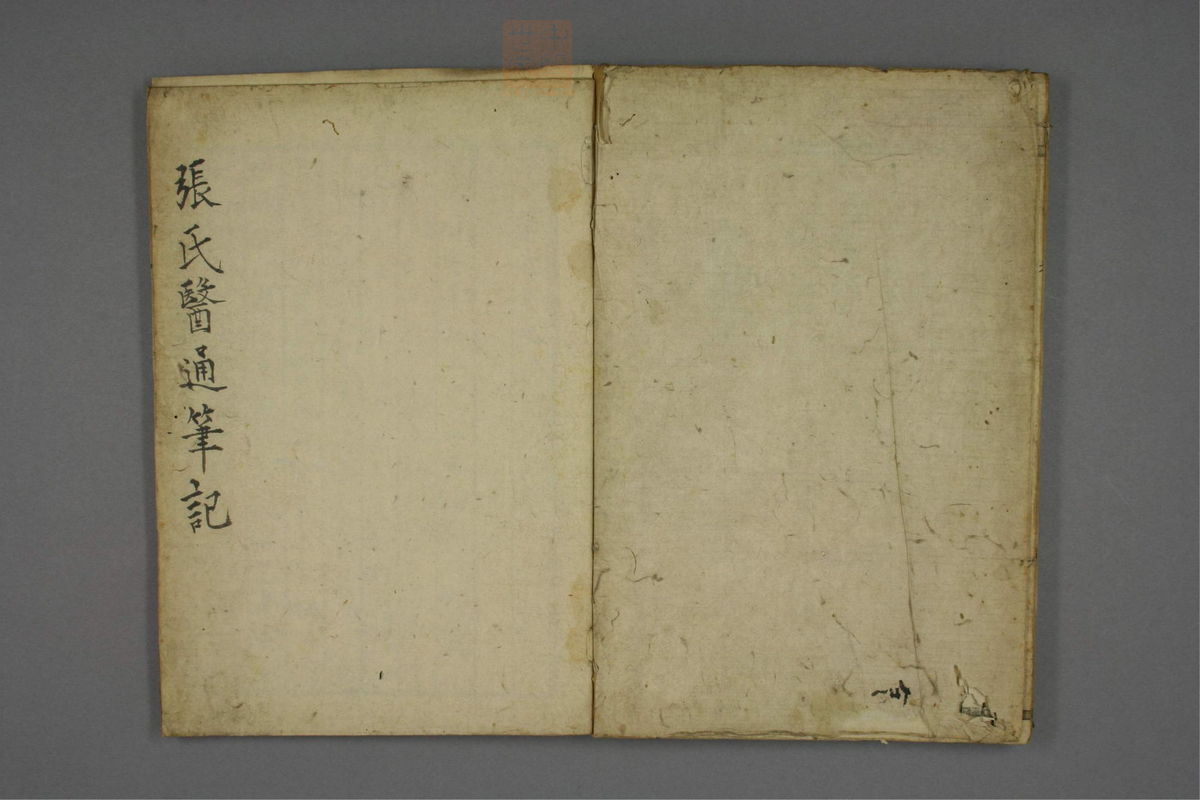 張氏醫通筆記